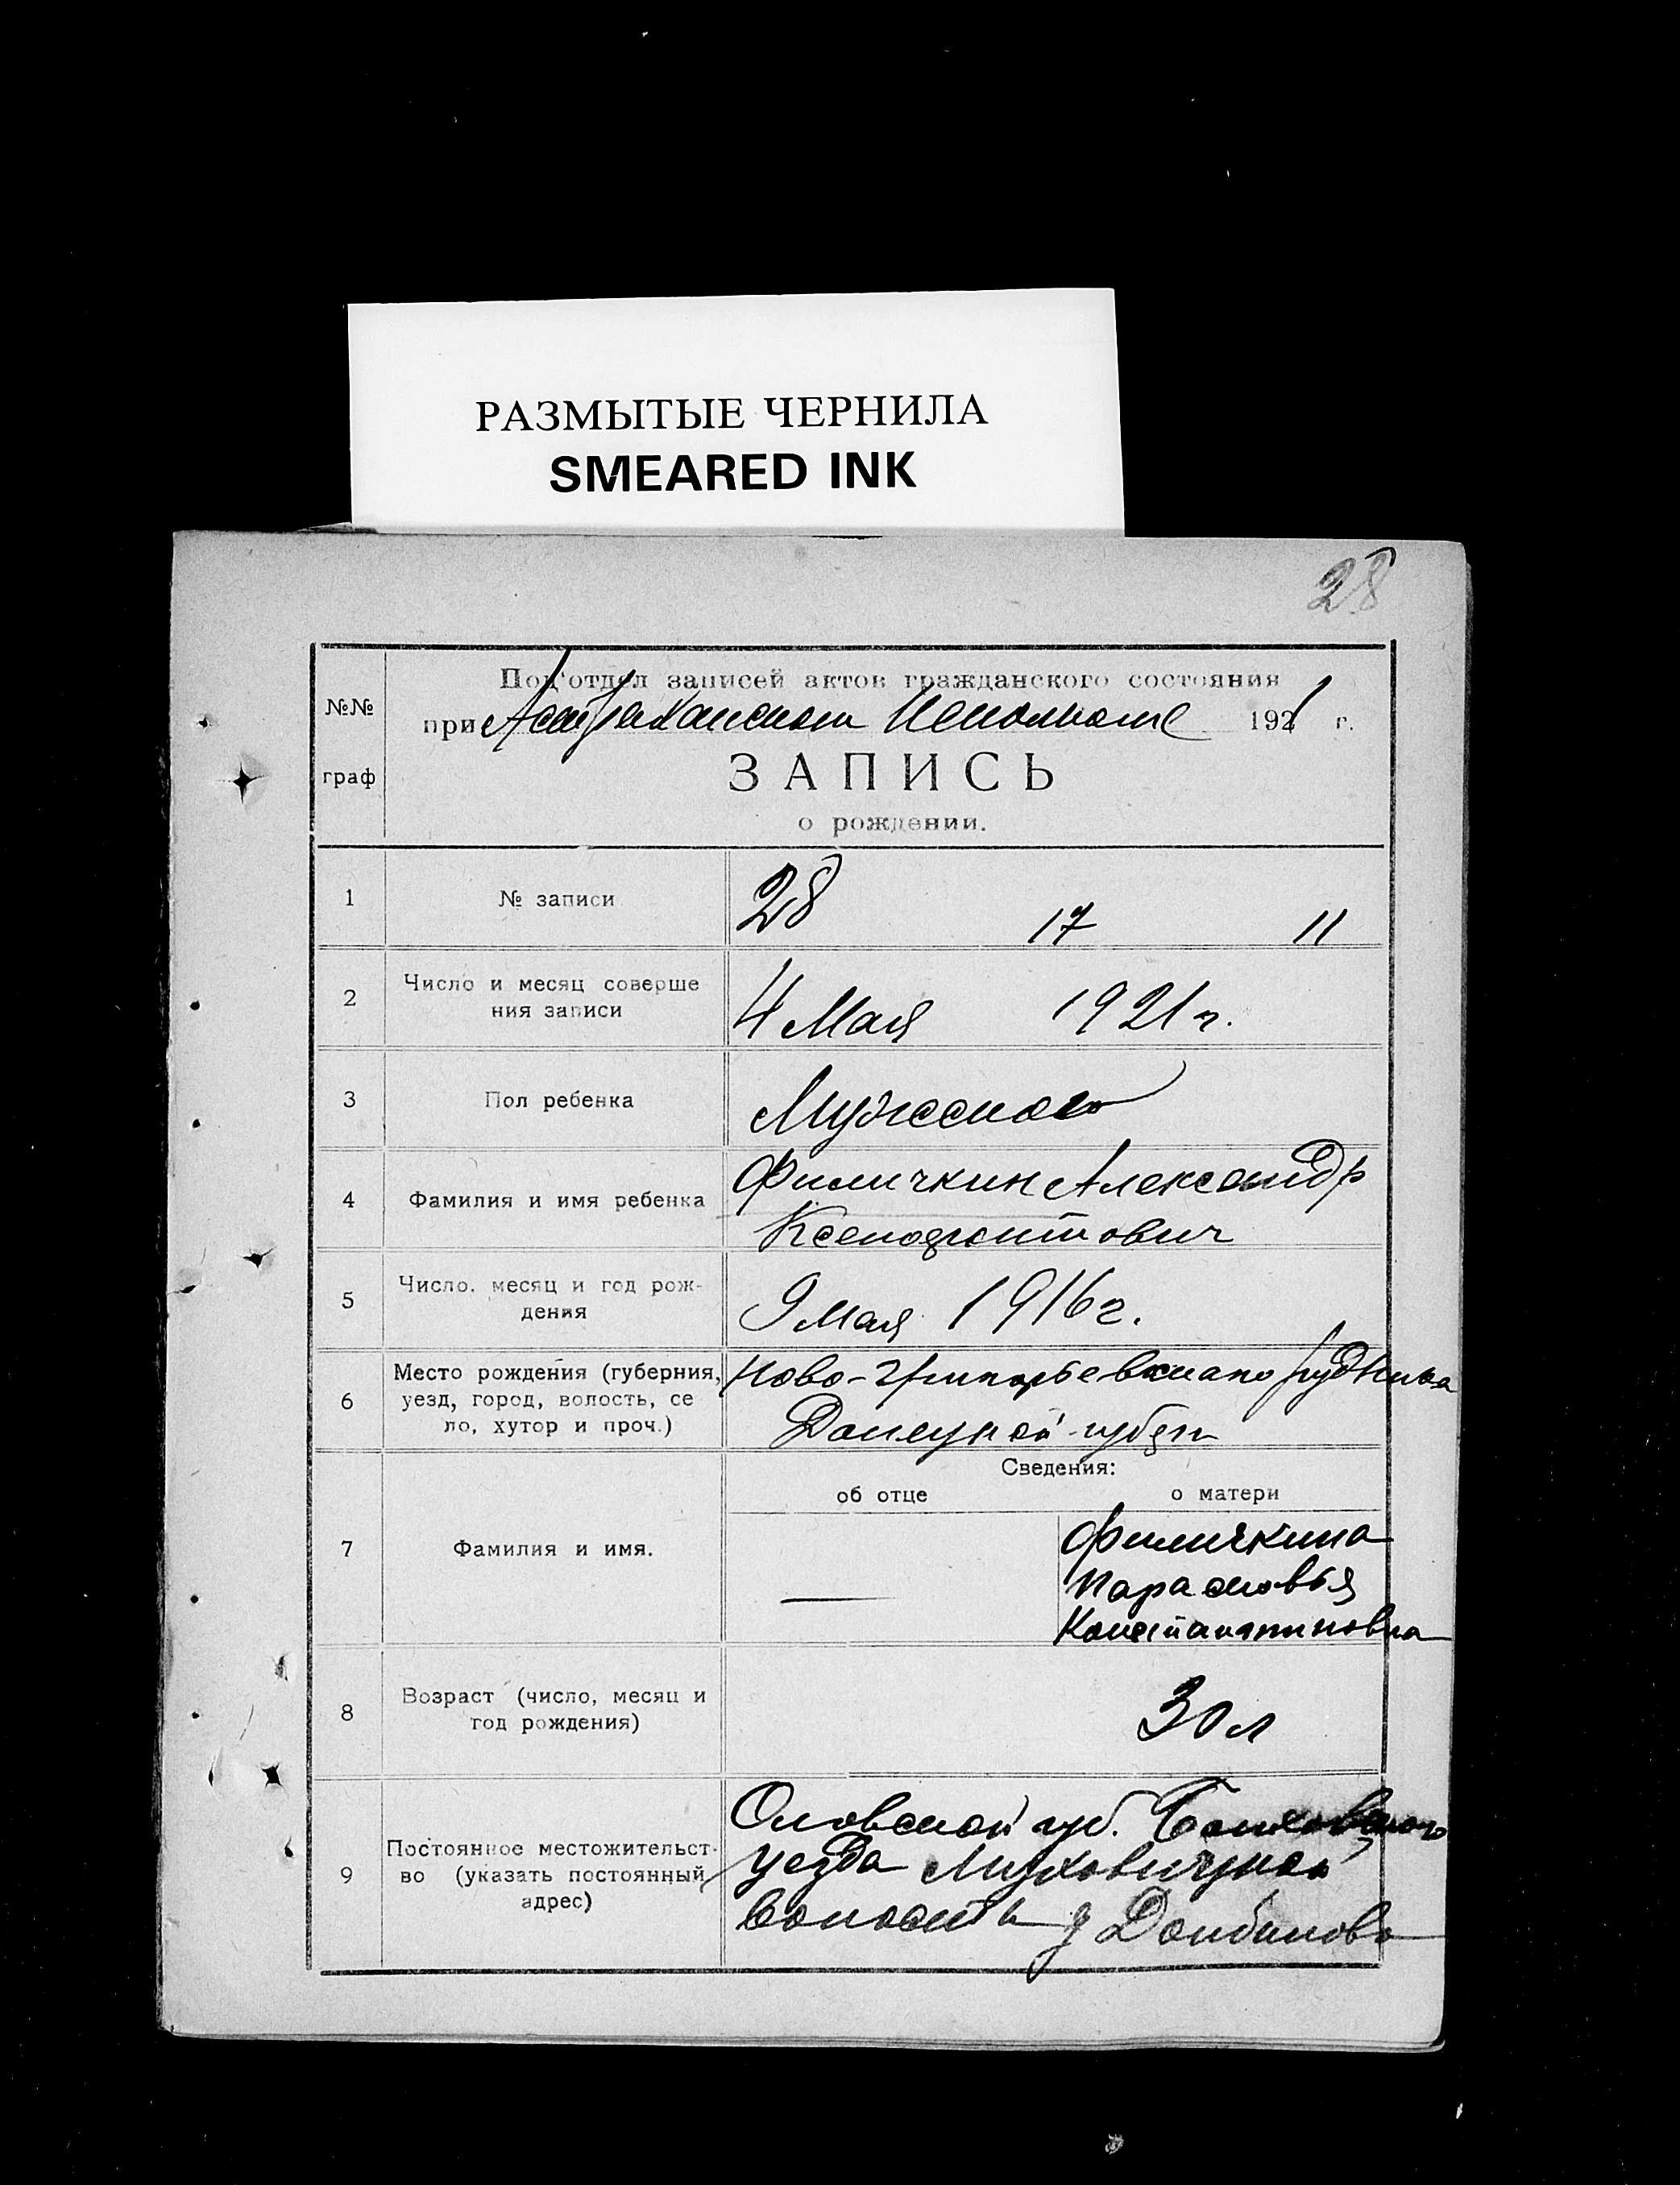 РАЗМЫТЫЕ ЧЕРНИЛА
SMEARED INK
28
№№ граф
Под'отдел записей актов гражданского состояния
при Исполкоме 1921 г.
ЗАПИСЬ
о рождении.
1 № записи 28 17 11
2 Число и месяц соверше
ния записи 4 Мая 1921 г.
3 Пол ребенка Мужеского
4 Фамилия и имя ребенка Филичкин Александр
Ксенофонтович
5 Число. месяц и год рож-
дения 9 Мая 1916 г.
6 Место рождения (губерния,
уезд, город, волость, се
ло, хутор и проч.)
Ново-Григорьевскаго рудника
Донецкой губерн
Сведения:
об отце о матери
7 Фамилия и имя. — Филичкина
Парасковья
Константиновна
8 Возраст (число, месяц и
год рождения) 30 л
9 Постоянное местожительст-
во (указать постоянный
адрес)
Орловской губ. Болховского
уезда
волости д